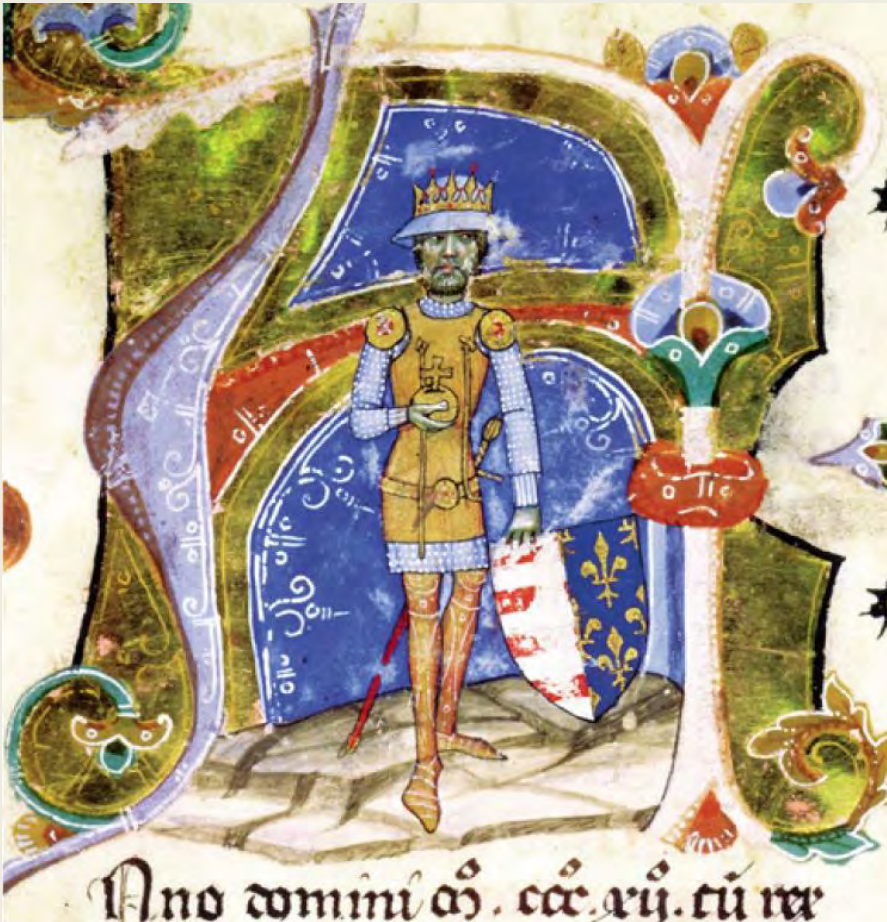 ANno domini mͦ. cccͦ. xij. cū rex